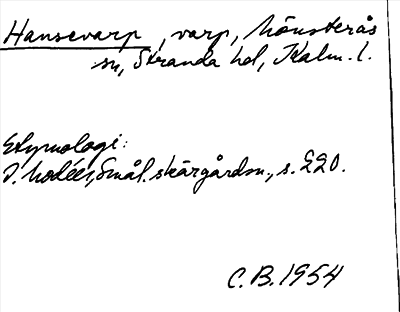 Hansevarp, varp, Mönsterås
sn, Stranda hd, Kalm. l.
Etymologi:
I. Modéer, Smål. skärgårdsn., s. 220.
C.B. 1954